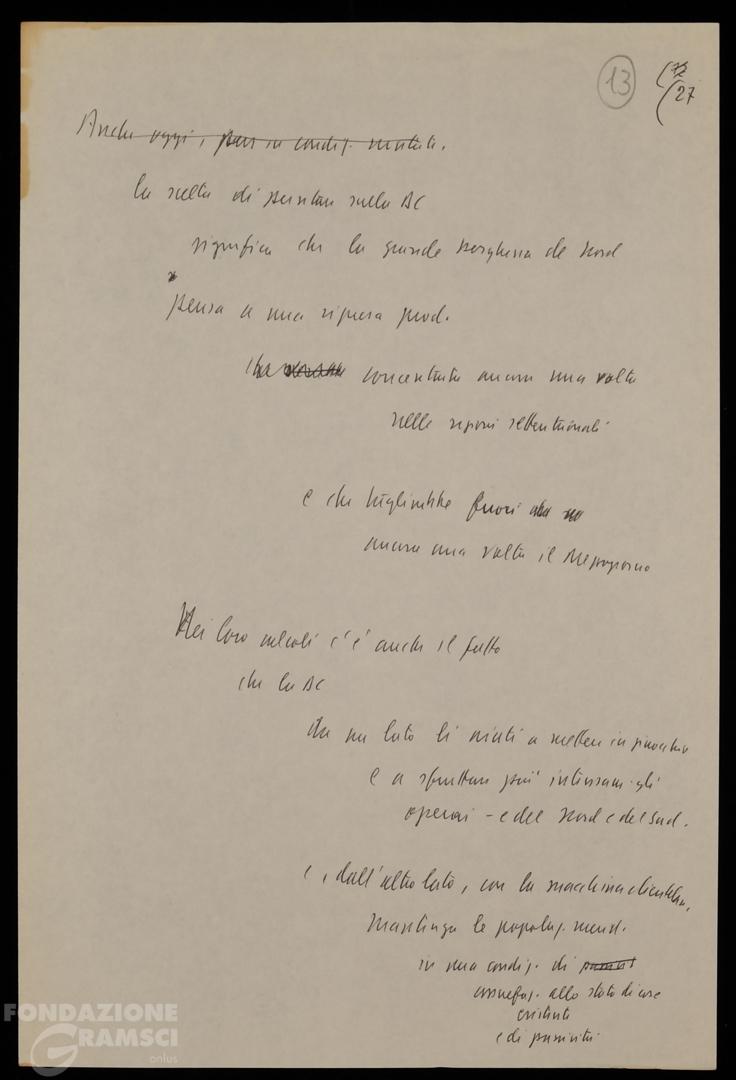 13 (72
(27
Anche oggi, pur in condiz. mutate.
la scelta di puntare sulla DC
significa che la grande borghesia del Nord
pensa a una ripresa prod.
che concentrata ancora una volta
nelle regioni settentrionali
e che taglierebbe fuori
ancora una volta il Mezzogiorno
Nei loro calcoli c'è anche il fatto
che la DC
da un lato li aiuti a mettere in ginocchio
e a sfruttare più intensam. gli
operai - e del Nord e del Sud.
e, dall'altro lato, con la macchina clientelare,
mantenga le popolaz. merid.
in una condiz. di
assuefaz. allo stato di cose
esistente
e di passività
FONDAZIONE
GRAMSCI
onlus